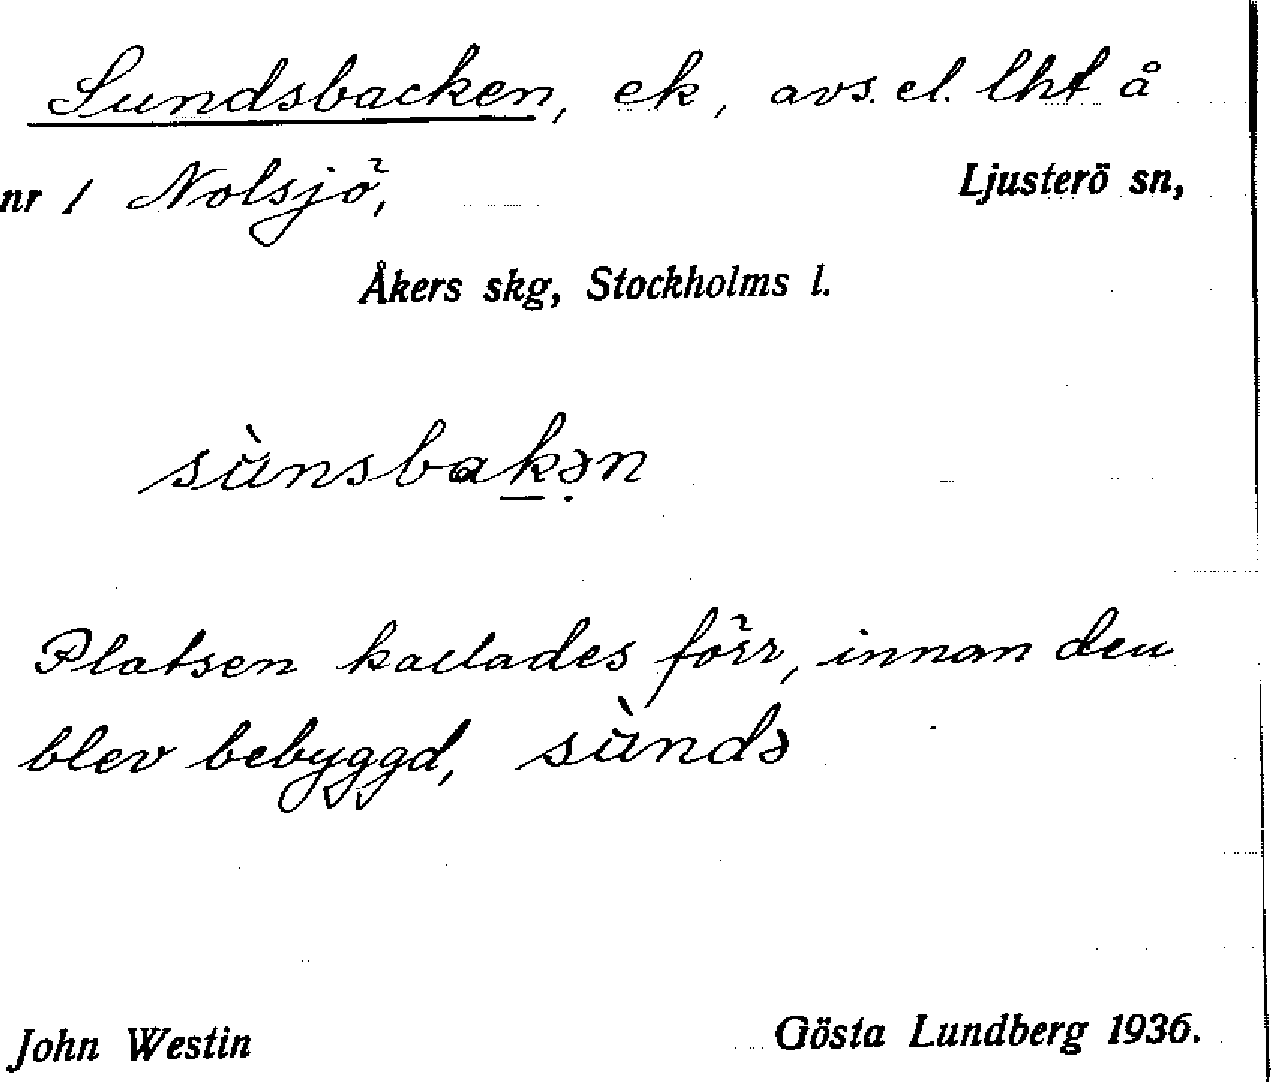 Sundsbacken, ek, avs. el. lht å
nr 1 Nolsjö, Ljusterö sn,
Åkers skg, Stockholms l.
sùnsbakə̣n
Platsen kallades förr, innan den
blev bebyggd, sùndə
John Westin Gösta Lundberg 1936.